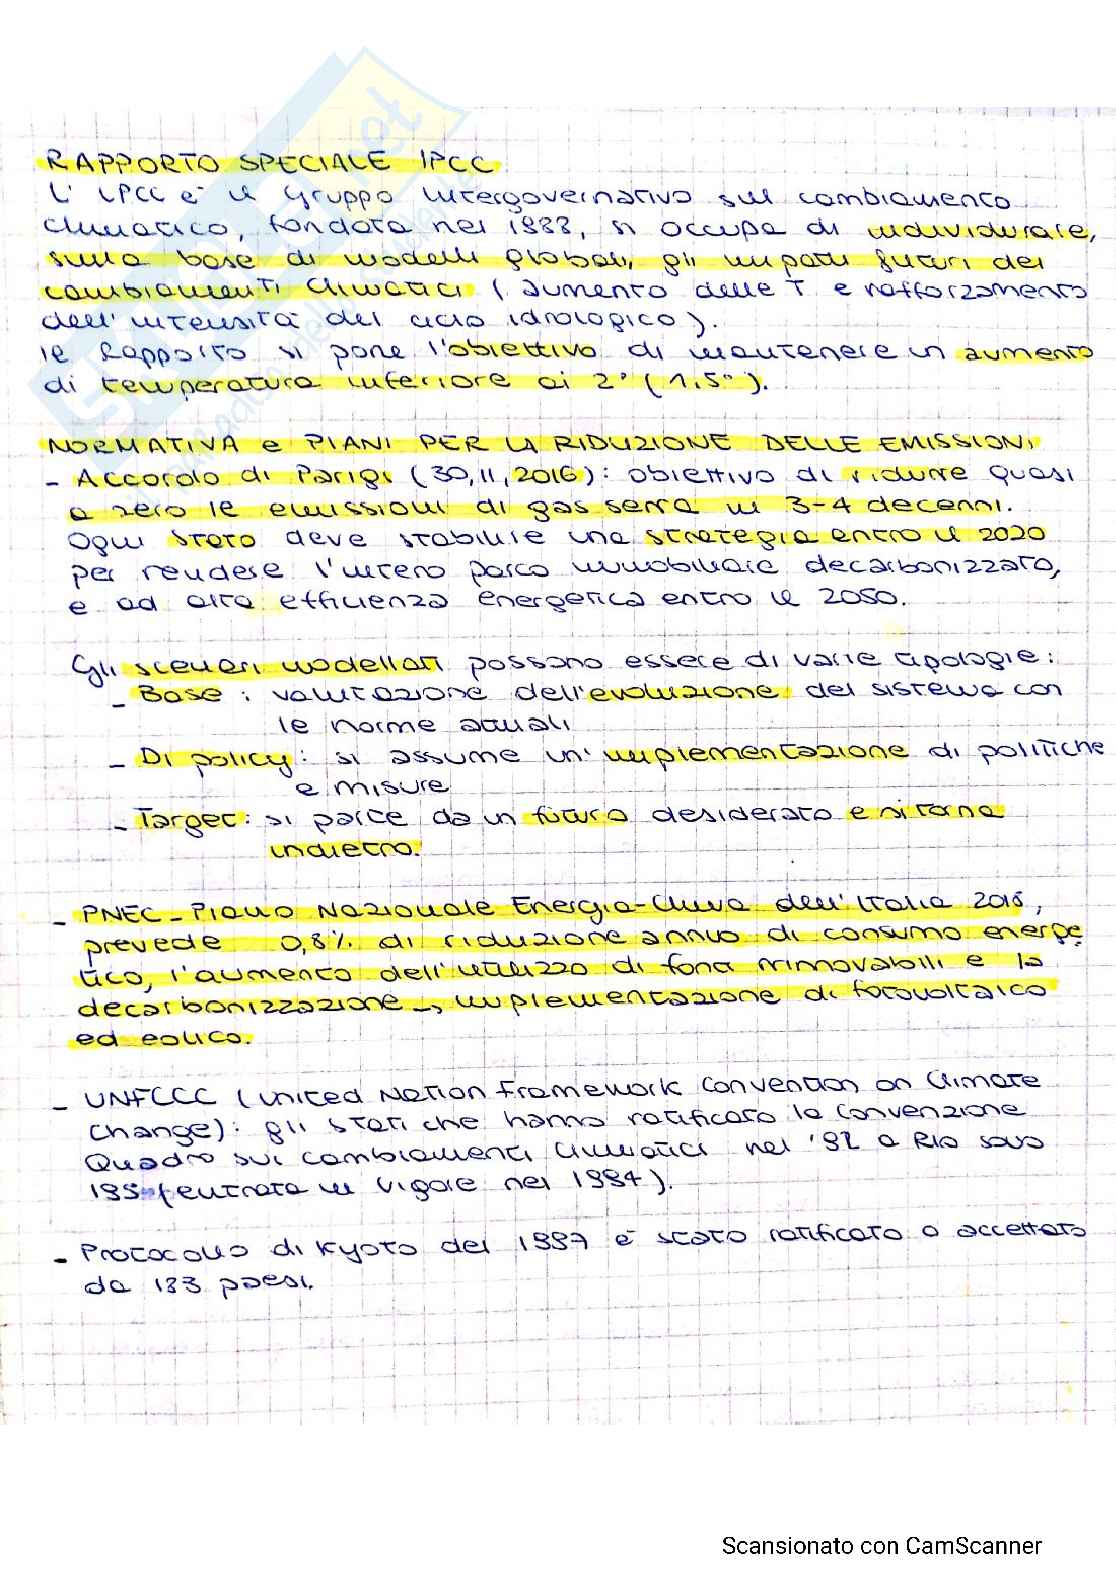 RAPPORTO SPECIALE IPCC
L'IPCC è il Gruppo Intergovernativo sul cambiamento
climatico, fondato nel 1988, si occupa di individurare,
sulla base di modelli globali, gli impatti futuri dei
cambiamenti climatici (aumento delle T e rafforzamento
dell'intensità del ciclo idrologico).
Il Rapporto si pone l'obiettivo di mantenere un aumento
di temperatura inferiore ai 2° (1,5°).
NORMATIVA e PIANI PER LA RIDUZIONE DELLE EMISSIONI
- Accordo di Parigi (30,11,2016): obiettivo di ridurre quasi
a zero le emissioni di gas serra in 3-4 decenni.
Ogni stato deve stabilire una strategia entro il 2020
per rendere l'intero parco immobiliare decarbonizzato,
e ad alta efficienza energetica entro il 2050.
Gli scenari modellati possono essere di varie tipologie:
- Base: valutazione dell'evoluzione del sistema con
le norme attuali
- Di policy: si assume un'implementazione di politiche
e misure
- Target: si parte da un futuro desiderato e si torna
indietro.
- PNEC - Piano Nazionale Energia-Clima dell'Italia 2018,
prevede 0,8% di riduzione annuo di consumo energe
tico, l'aumento dell'utilizzo di fonti rinnovabili e la
decarbonizzazione → implementazione di fotovoltaico
ed eolico.
- UNFCCC (United Nation Framework Convention on Climate
Change): gli stati che hanno ratificato la Convenzione
Quadro sui cambiamenti climatici nel '92 a Rio sono
195 (entrata in vigore nel 1994).
- Protocollo di Kyoto del 1997 è stato ratificato o accettato
da 193 paesi.
Scansionato con CamScanner